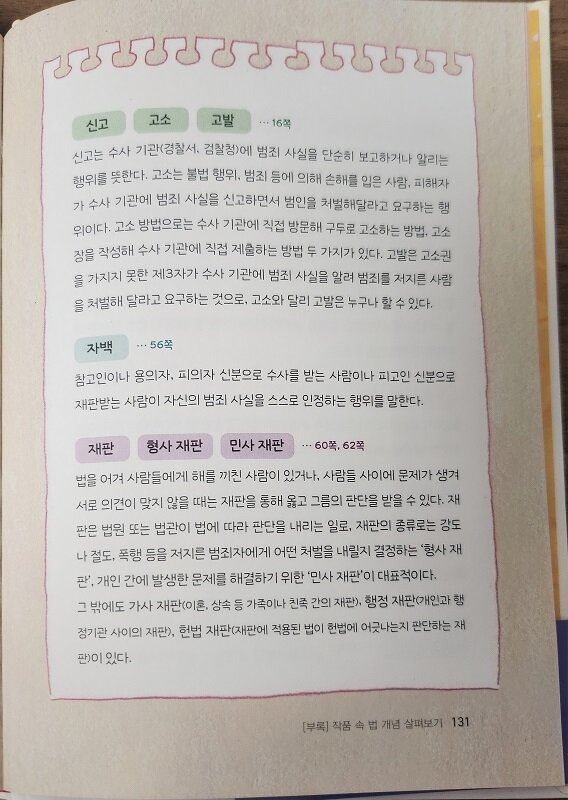 신고 고소 고발 ··· 16쪽
신고는 수사 기관(경찰서, 검찰청)에 범죄 사실을 단순히 보고하거나 알리는
행위를 뜻한다. 고소는 불법 행위, 범죄 등에 의해 손해를 입은 사람, 피해자
가 수사 기관에 범죄 사실을 신고하면서 범인을 처벌해달라고 요구하는 행
위이다. 고소 방법으로는 수사 기관에 직접 방문해 구두로 고소하는 방법, 고소
장을 작성해 수사 기관에 직접 제출하는 방법 두 가지가 있다. 고발은 고소권
을 가지지 못한 제3자가 수사 기관에 범죄 사실을 알려 범죄를 저지른 사람
을 처벌해 달라고 요구하는 것으로, 고소와 달리 고발은 누구나 할 수 있다.
자백 ··· 56쪽
참고인이나 용의자, 피의자 신분으로 수사를 받는 사람이나 피고인 신분으로
재판받는 사람이 자신의 범죄 사실을 스스로 인정하는 행위를 말한다.
재판 형사 재판 민사 재판 ··· 60쪽, 62쪽
법을 어겨 사람들에게 해를 끼친 사람이 있거나, 사람들 사이에 문제가 생겨
서로 의견이 맞지 않을 때는 재판을 통해 옳고 그름의 판단을 받을 수 있다. 재
판은 법원 또는 법관이 법에 따라 판단을 내리는 일로, 재판의 종류로는 강도
나 절도, 폭행 등을 저지른 범죄자에게 어떤 처벌을 내릴지 결정하는 ‘형사 재
판’, 개인 간에 발생한 문제를 해결하기 위한 ‘민사 재판’이 대표적이다.
그 밖에도 가사 재판(이혼, 상속 등 가족이나 친족 간의 재판), 행정 재판(개인과 행
정기관 사이의 재판), 헌법 재판(재판에 적용된 법이 헌법에 어긋나는지 판단하는 재
판)이 있다.
[부록] 작품 속 법 개념 살펴보기 131